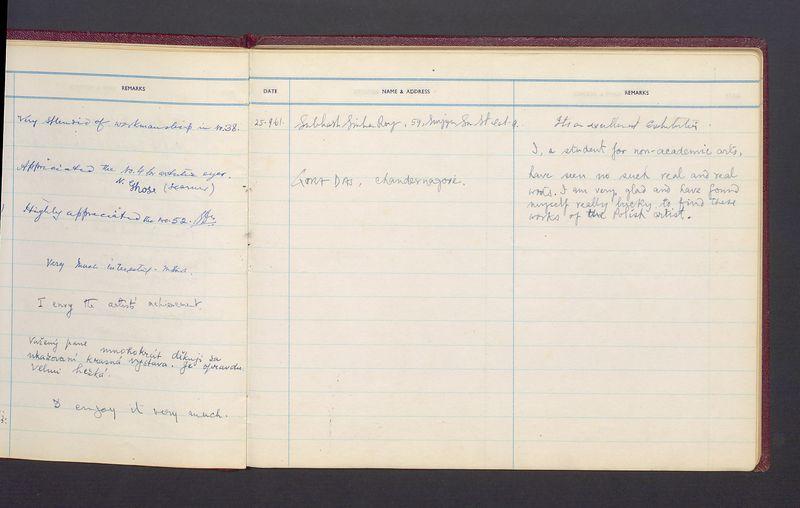 REMARKS
Very splendid of workmanship in No.38.
Appreciated the No.46 artistic eyes.
N. Ghose (learner)
Highly appreciated the No.52.
Very much interesting
I envy the artist's achievement.
Vážený pane mnohokrát děkuji za
ukazovaní krasna výstava. Je opravdu
velmi hezká.
I enjoy it very much.
DATE
NAME & ADDRESS
REMARKS
25.9.61.
Subhash Sinha Roy, 59,
Its an excellent exhibition.
GORA DAS, Chandernagore.
I, a student for non-academic arts,
have seen no such real and real
works. I am very glad and have found
myself really lucky to find these
works of the Polish artist.